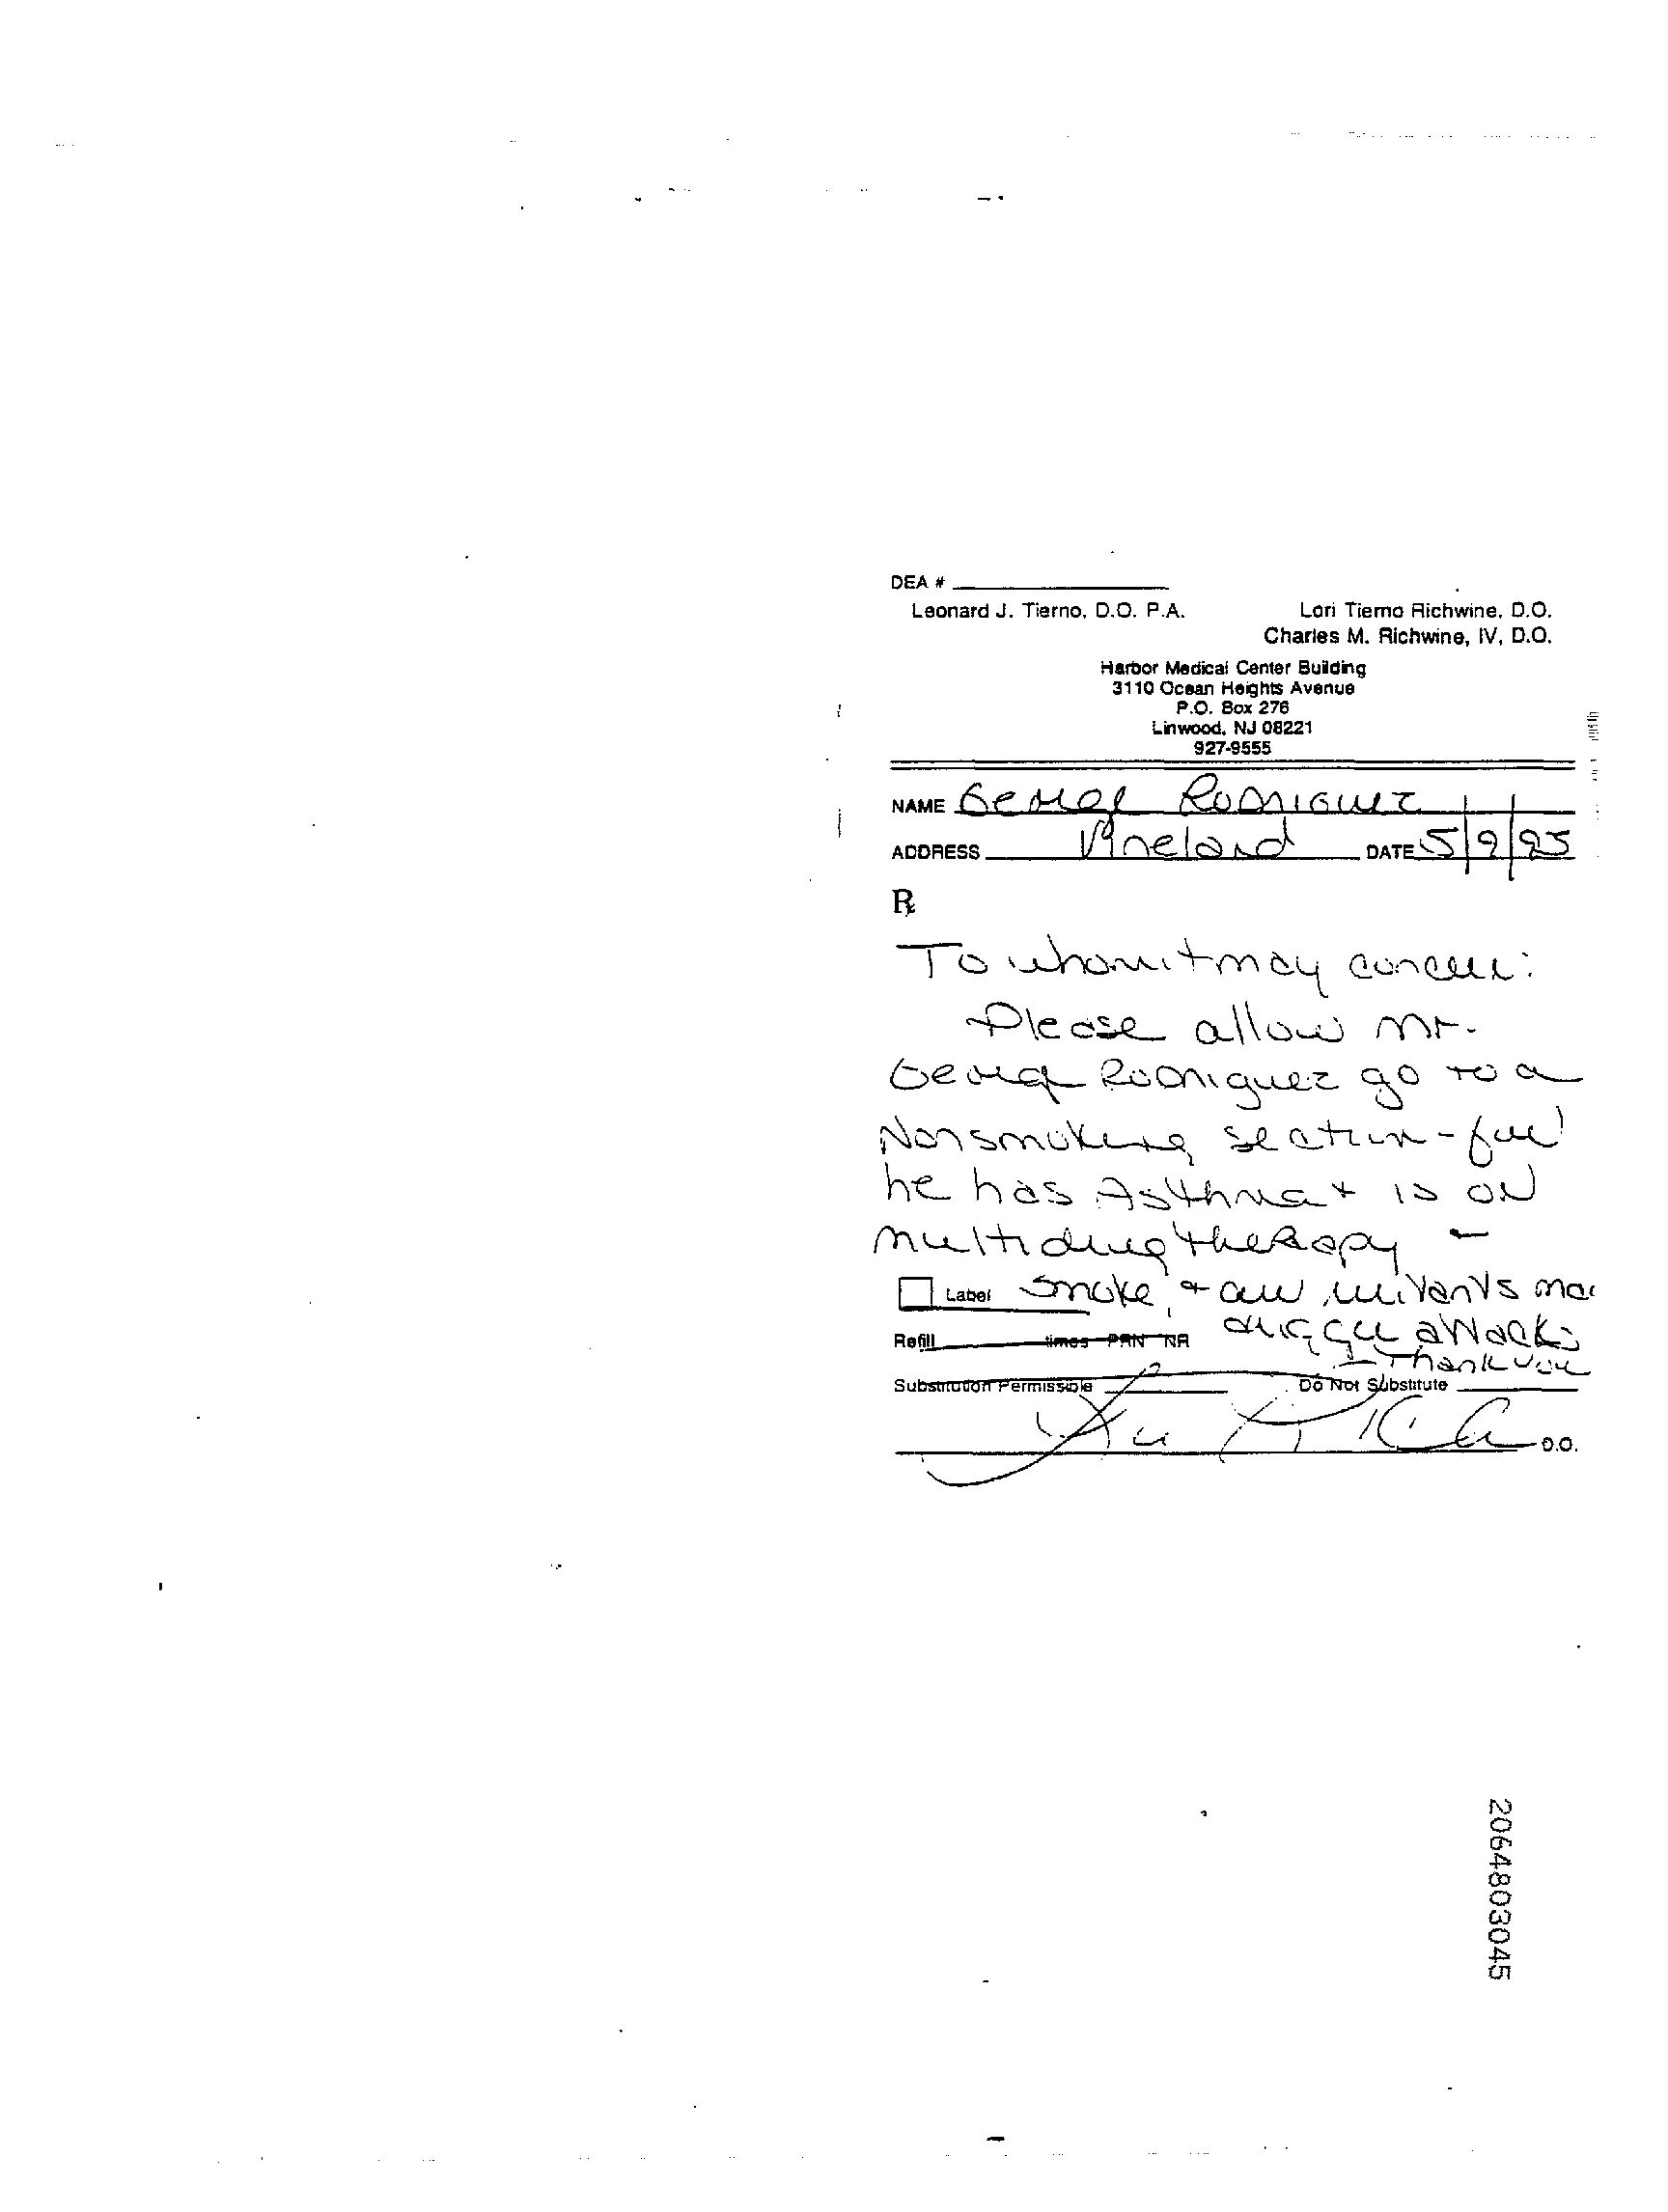 DEA #
Leonard J. Tierno, D.O. P.A. Lori Tierno Richwine, D.O.
Charles M. Richwine, IV, D.O.
Harbor Medical Center Building
3110 Ocean Heights Avenue
P.O. Box 276
Linwood, NJ 08221
927-9555
NAME George Rodriguez
ADDRESS Vineland DATE 5/9/95
Rx
To whom it may concern:
Please allow Mr.
George Rodriguez go to a
Nonsmoking section - for
he has Asthma + is on
multidrug therapy -
Label Smoke, + air irritants may
Refill times PRN NR trigger attacks
- Thank you
Substitution Permissible Do Not Substitute
D.O.
2064803045